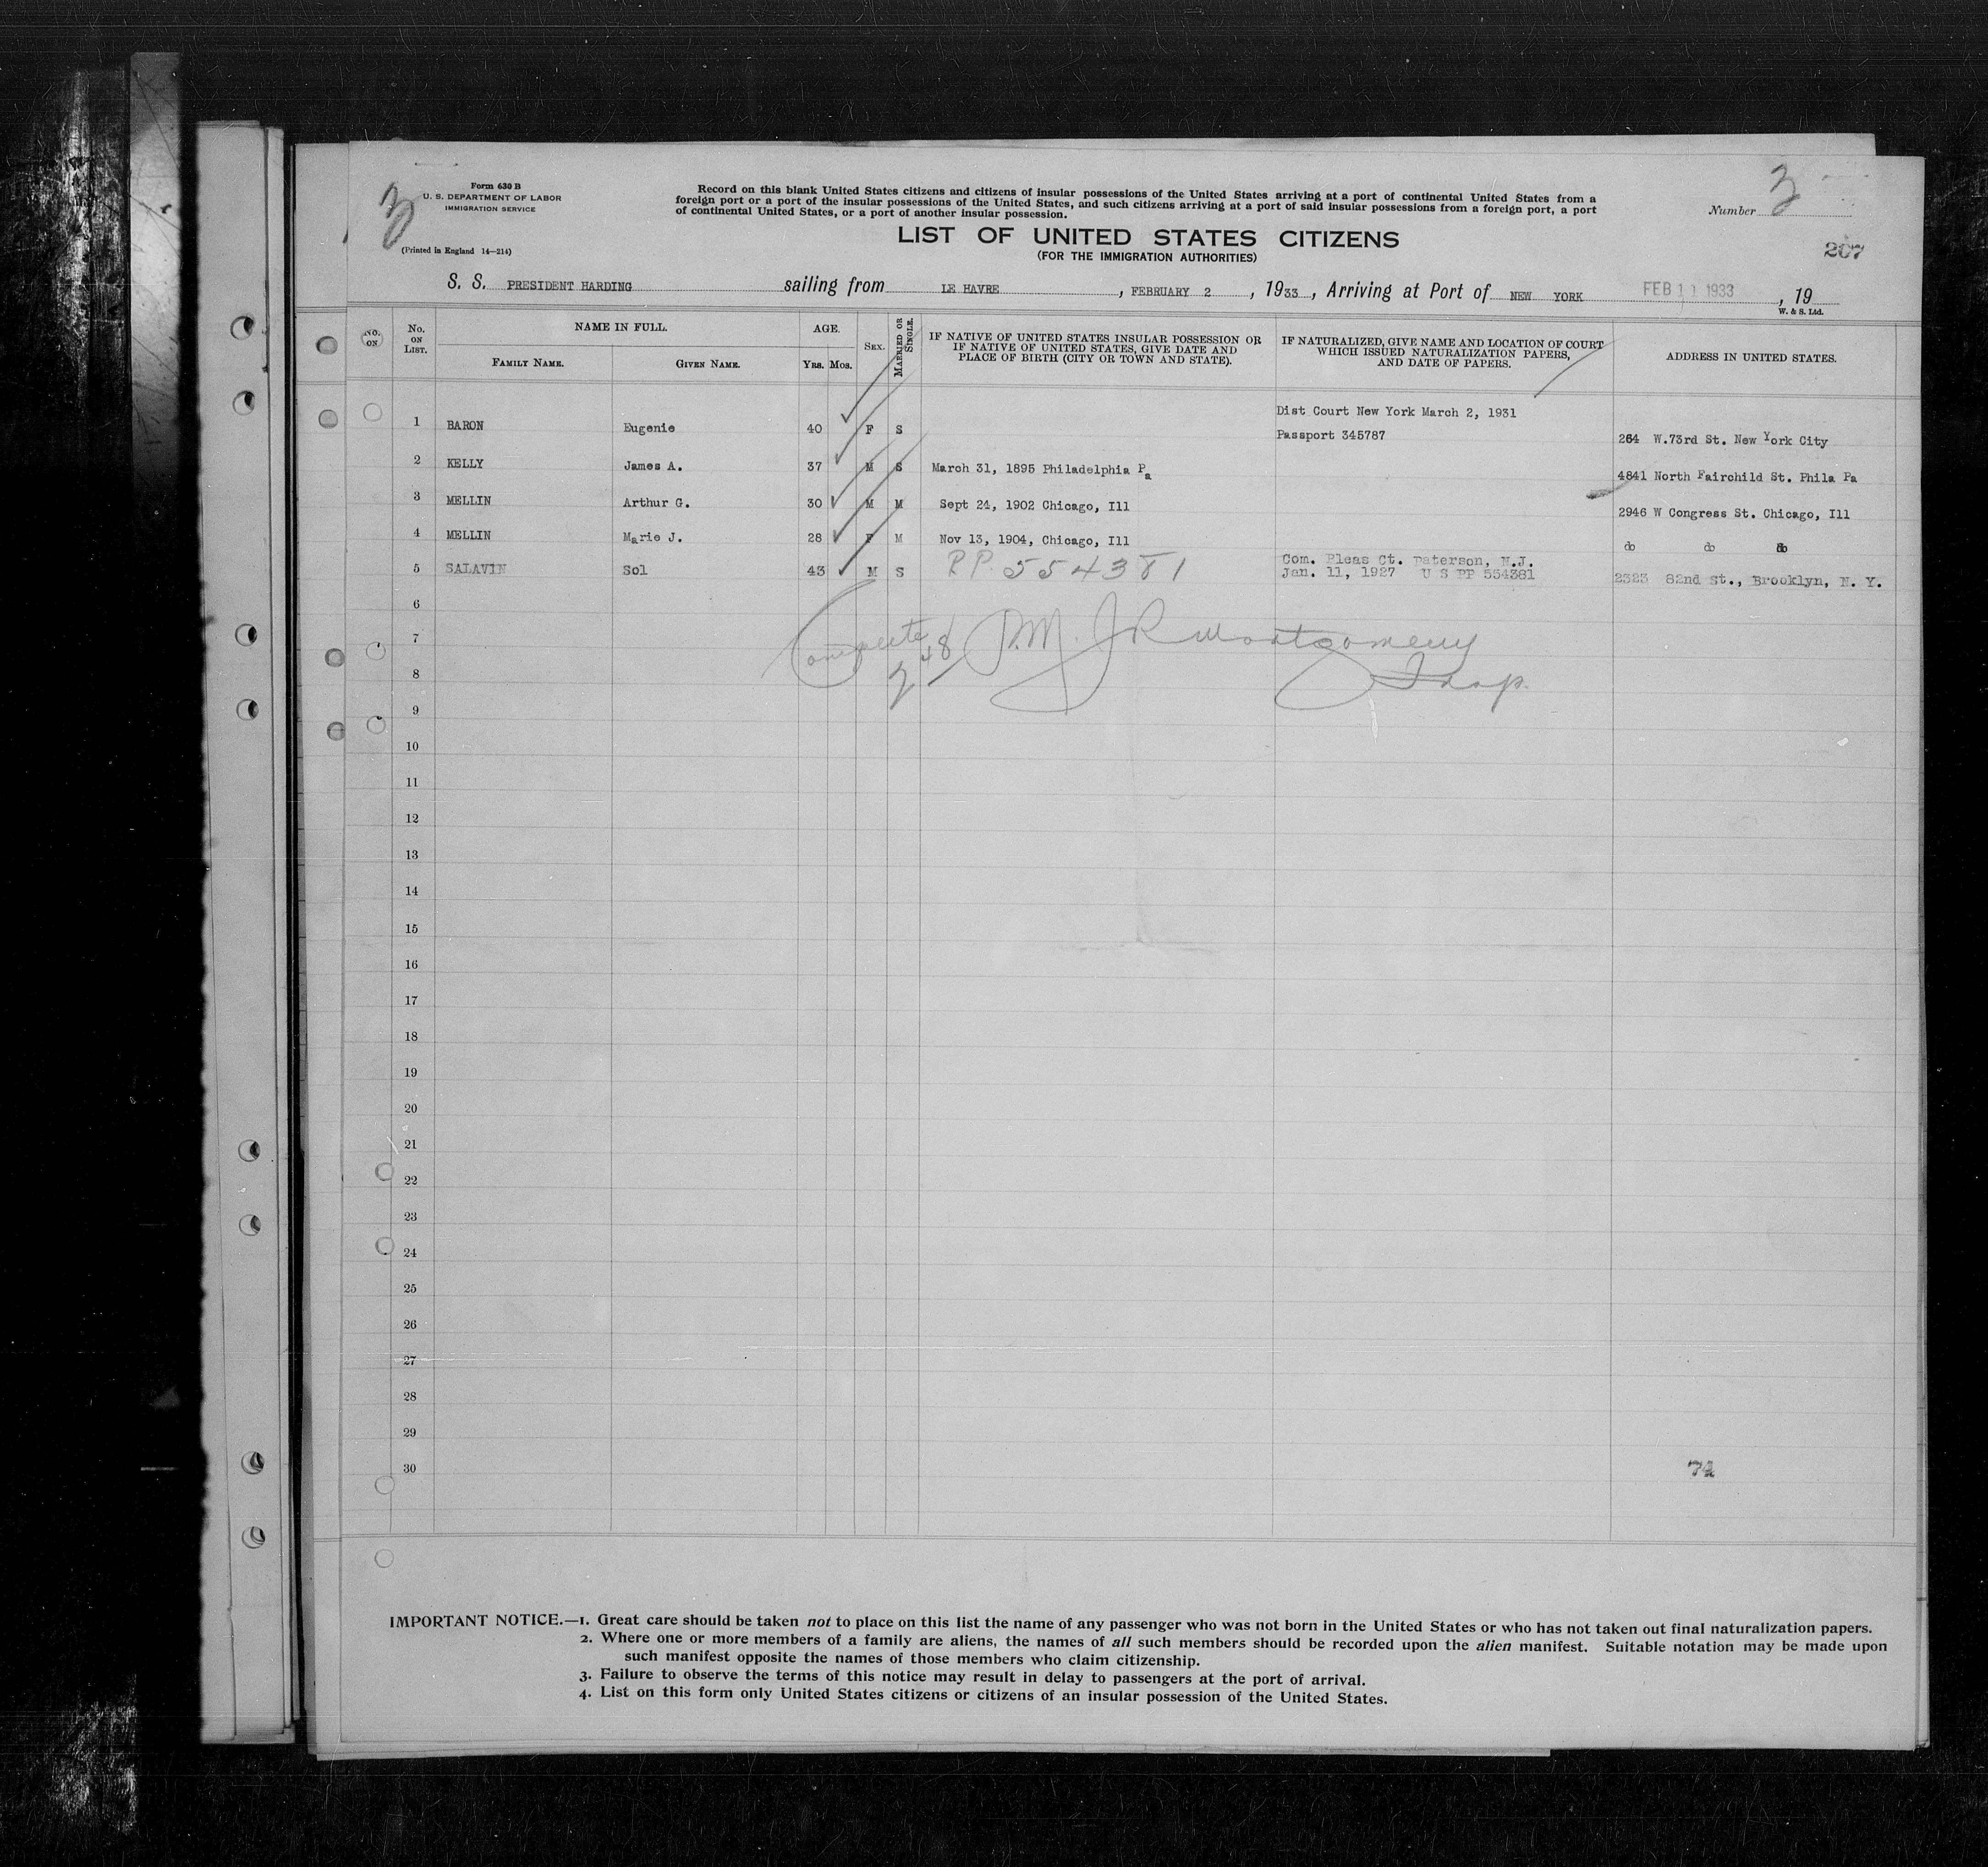 3
Form 630 B
U. S. DEPARTMENT OF LABOR
IMMIGRATION SERVICE
(Printed in England 14—214)
Record on this blank United States citizens and citizens of insular possessions of the United States arriving at a port of continental United States from a
foreign port or a port of the insular possessions of the United States, and such citizens arriving at a port of said insular possessions from a foreign port, a port
of continental United States, or a port of another insular possession.
Number 3
LIST OF UNITED STATES CITIZENS
(FOR THE IMMIGRATION AUTHORITIES)
207
S. S. PRESIDENT HARDING sailing from LE HAVRE, FEBRUARY 2, 1933, Arriving at Port of NEW YORK FEB 11 1933, 19
W. & S. Ltd.
NO. ON
No. ON LIST. NAME IN FULL. AGE. SEX. MARRIED OR SINGLE. IF NATIVE OF UNITED STATES INSULAR POSSESSION OR IF NATIVE OF UNITED STATES, GIVE DATE AND PLACE OF BIRTH (CITY OR TOWN AND STATE). IF NATURALIZED, GIVE NAME AND LOCATION OF COURT WHICH ISSUED NATURALIZATION PAPERS, AND DATE OF PAPERS. ADDRESS IN UNITED STATES.
FAMILY NAME. GIVEN NAME. YRS. MOS.
1 BARON Eugenie 40 F S Dist Court New York March 2, 1931
Passport 345787 264 W.73rd St. New York City
2 KELLY James A. 37 M S March 31, 1895 Philadelphia Pa 4841 North Fairchild St. Phila Pa
3 MELLIN Arthur G. 30 M M Sept 24, 1902 Chicago, Ill 2946 W Congress St. Chicago, Ill
4 MELLIN Marie J. 28 F M Nov 13, 1904, Chicago, Ill do do do
5 SALAVIN Sol 43 M S PP 554381 Com. Pleas Ct. Paterson, N.J.
Jan. 11, 1927 U S PP 554381 2323 82nd St., Brooklyn, N. Y.
6
7 Complete P.M. J R Montgomery
8 Insp.
9
10
11
12
13
14
15
16
17
18
19
20
21
22
23
24
25
26
27
28
29
30
IMPORTANT NOTICE.—1. Great care should be taken not to place on this list the name of any passenger who was not born in the United States or who has not taken out final naturalization papers.
2. Where one or more members of a family are aliens, the names of all such members should be recorded upon the alien manifest. Suitable notation may be made upon
such manifest opposite the names of those members who claim citizenship.
3. Failure to observe the terms of this notice may result in delay to passengers at the port of arrival.
4. List on this form only United States citizens or citizens of an insular possession of the United States.